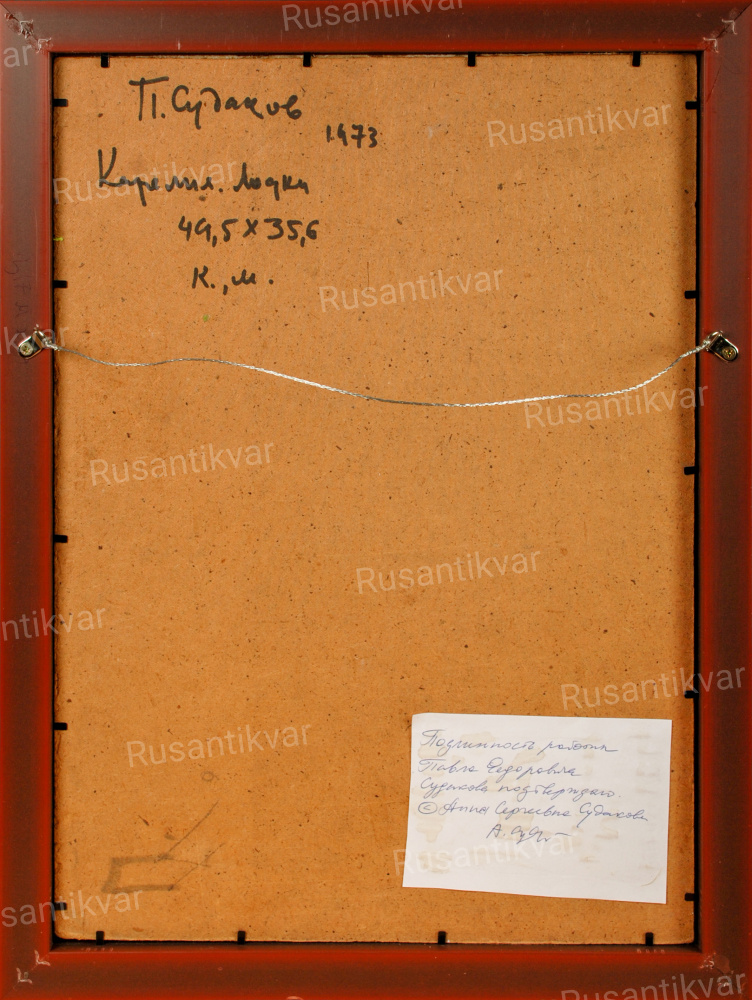 П. Судаков
1973
Карелия. Лодки
49,5 x 35,6
К., м.
Подлинность работы
Павла Федоровича
Судакова подтверждаю.
© Анна Сергеевна Судакова
Rusantikvar
Rusantikvar
Rusantikvar
Rusantikvar
Rusantikvar
Rusantikvar
Rusantikvar
Rusantikvar
Rusantikvar
Rusantikvar
Rusantikvar